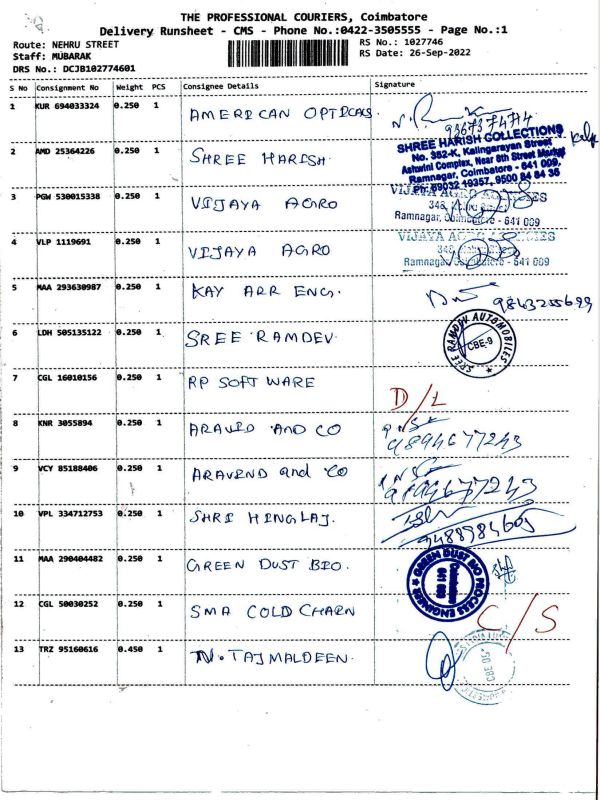 THE PROFESSIONAL COURIERS, Coimbatore
Delivery Runsheet - CMS - Phone No.:0422-3505555 - Page No.:1
Route: NEHRU STREET
RS No.: 1027746
Staff: MUBARAK
RS Date: 26-Sep-2022
DRS No.: DCJB102774601
S No Consignment No Weight PCS Consignee Details Signature
1 KUR 694033324 0.250 1 AMERICAN OPTICALS
2 AMD 25364226 0.250 1 SHREE HARISH.
SHREE HARISH COLLECTIONS
No. 352-K, Kalingarayan Street
Ashwini Complex, Near 8th Street Market
Ramnagar, Coimbatore - 641 009,
Ph: 89032 19357, 9500 84 84 35
3 PGW 530015338 0.250 1 VIJAYA AGRO
VIJAYA AGRO AGENCIES
Ramnagar, Coimbatore - 641 009
4 VLP 1119691 0.250 1 VIJAYA AGRO
VIJAYA AGRO AGENCIES
Ramnagar, Coimbatore - 641 009
5 MAA 293630987 0.250 1 KAY ARR ENG.
6 LDH 505135122 0.250 1 SREE RAMDEV.
SREE RAMDEV AUTOMOBILES
CBE-9
7 CGL 16010156 0.250 1 RP SOFTWARE
D/L
8 KNR 3055894 0.250 1 ARAVIND AND CO
9894677243
9 VCY 85188406 0.250 1 ARAVEND and CO
9894677243
10 VPL 334712753 0.250 1 SHRI HINGLAJ.
9488984605
11 MAA 290404482 0.250 1 GREEN DUST BIO.
GREEN DUST BIO PROCESS ENGINEERS
Coimbatore
641 009
12 CGL 50030252 0.250 1 SMA COLD CHAEN
C/S
13 TRZ 95160616 0.450 1 N. TAJMALDEEN.